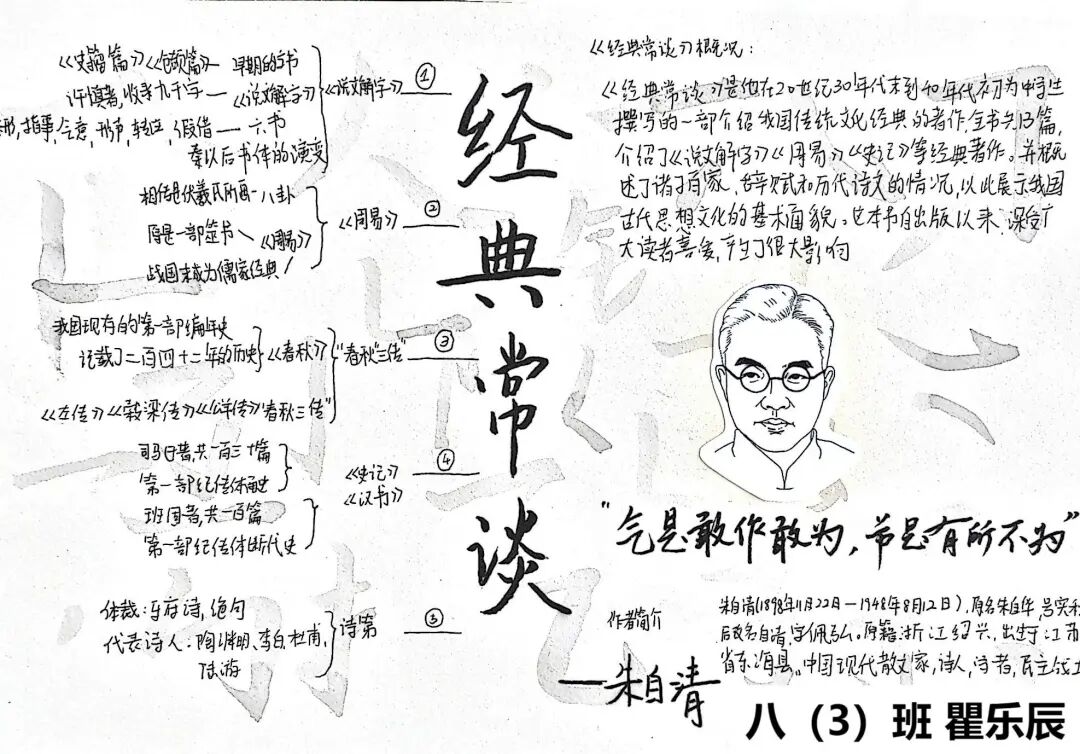 经典常谈
①
《说文解字》
《史籀篇》《仓颉篇》— 早期的字书
许慎著，收字九千字 — 《说文解字》
形，指事，会意，形声，转注，假借 — 六书
秦以后书体的演变
②
《周易》
相传是伏羲氏所画 — 八卦
原是一部筮书
《周易》
战国末成为儒家经典
③
"春秋"三传
我国现有的第一部编年史
记载了二百四十二年的历史
《春秋》
《左传》《穀梁传》《公羊传》"春秋三传"
④
《史记》
《汉书》
司马迁著，共一百三十篇
第一部纪传体通史
班固著，共一百篇
第一部纪传体断代史
⑤
诗第
体裁：乐府诗，绝句
代表诗人：陶渊明，李白，杜甫，
陆游
《经典常谈》概况：
《经典常谈》是他在20世纪30年代末到40年代初为中学生
撰写的一部介绍我国传统文化经典的著作，全书共13篇，
介绍了《说文解字》《周易》《史记》等经典著作。并概
述了诸子百家，辞赋和历代诗文的情况，以此展示我国
古代思想文化的基本面貌。这本书自出版以来，深受广
大读者喜爱，产生了很大影响
"气是敢作敢为，节是有所不为"
作者简介
朱自清(1898年11月22日—1948年8月12日)，原名朱自华，号实秋
后改名自清，字佩弘。原籍浙江绍兴，出生于江苏
省东海县。中国现代散文家，诗人，学者，民主战士
—朱自清
八（3）班 瞿乐辰